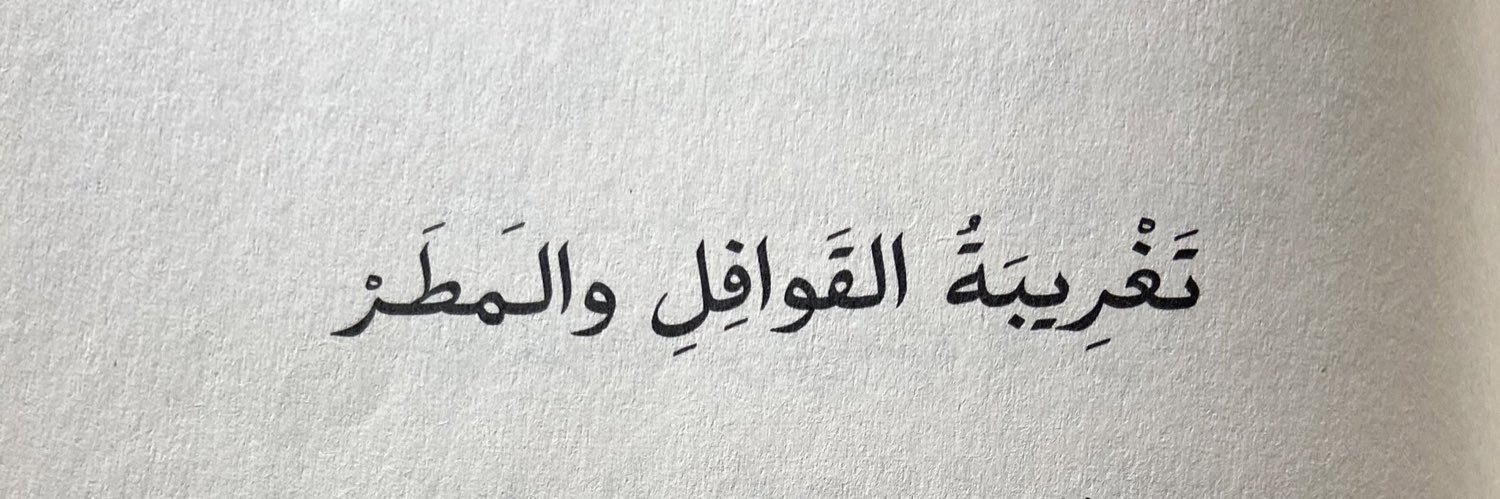 تَغْرِيبَةُ القَوافِلِ والمَطَرْ